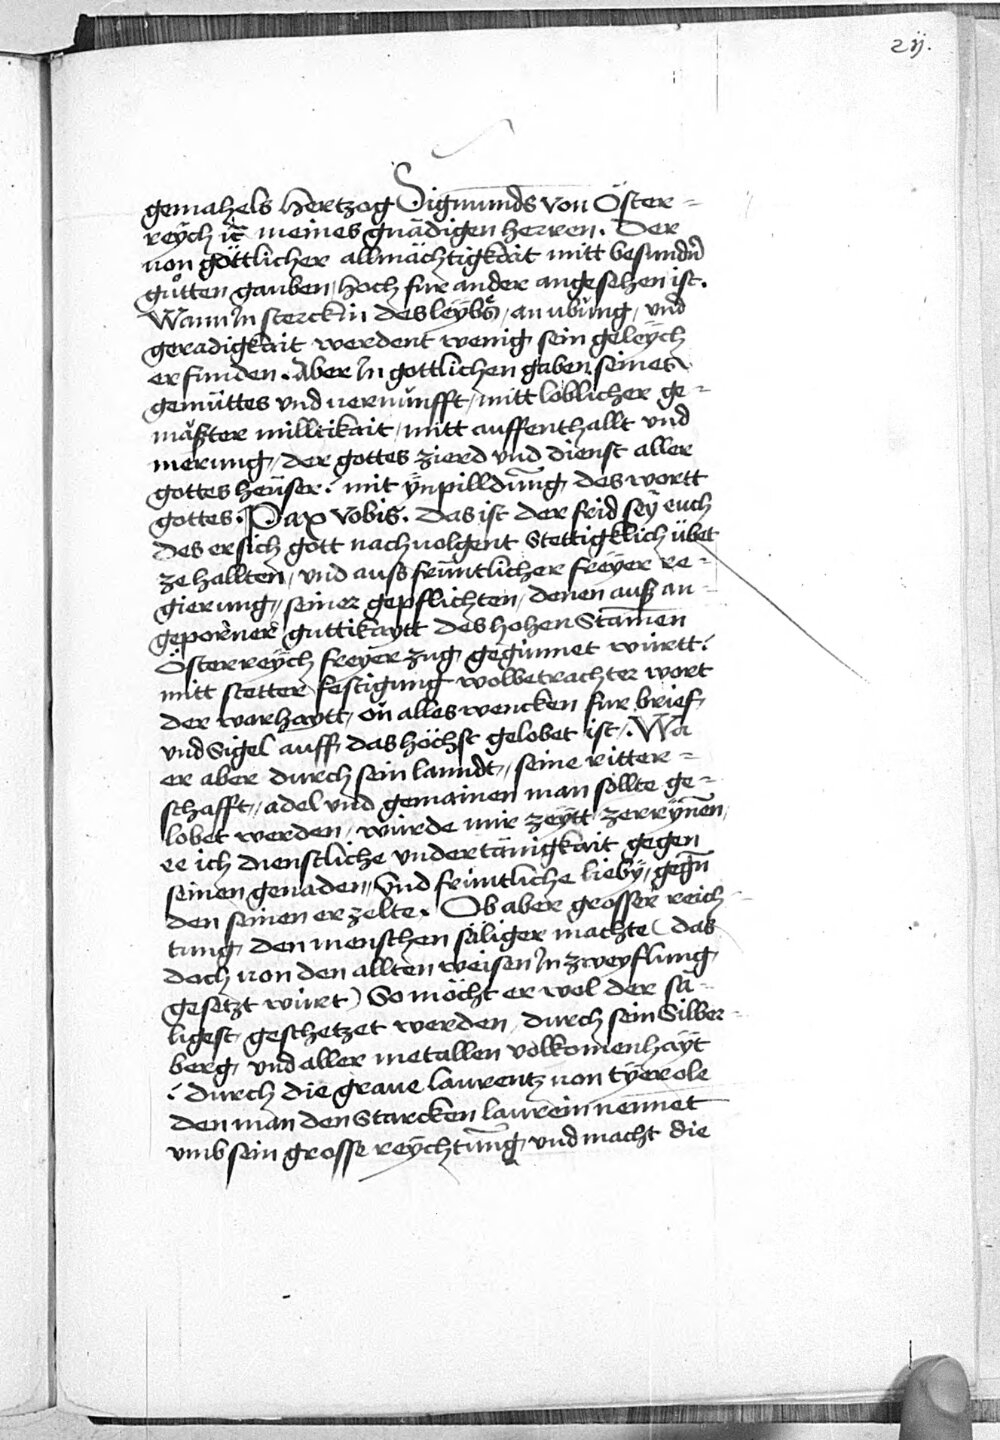 2ij.
gemahels hertzog Sigmunds von Öster-
reÿch ꝛc̄ meines gnädigen herren. Der
von göttlicher allmächtigkait mitt besundn̄
gůtten gauben, hoch für ander angesehen ist.
Wann In stercki̇n des leÿbs, an ubung, und
geradigkait werdent wenig sein geleÿch
erfunden. Aber In gottlichen gaben seines
gemüttes vnd vernunfft, mitt löblicher ge-
mäßter milltikait, mitt auffenthallt und
merung, der gottes zierd vnd dienst aller
gottes heüser. mit ÿnpilldung des wortt
gottes. Pax vobis. Das ist der frid seÿ euch
des er sich gott nachuolgent Stettigklich übet
ze hallten, vnd auss früntlicher freÿer re-
gierung, seiner gepflichten, denen auß an-
geporner guttikaytt des hohen Stamen
Österreÿch freÿer zug gegünnet württ.
mitt stetter festigung wolbetrachter wort
der warhaytt, on alles wencken für brief,
vnd Sigel auff das höchst gelobet ist. Wa
er aber durch sein lanndt, seine ritter-
schafft, adel und gemainen man sollte ge-
lobet werden, würde mir zeÿtt zerrÿnen,
ee ich dienstliche vndertänigkait gegen
seinen genaden, Vnd früntliche liebÿ, gegn̄
den seinen erzelte. Ob aber grosser reich-
tung, den menschen säliger machte (das
doch von den allten weisen In zweyflung
gesetzt würt) So möcht er wol der sä-
ligest, geschetzet werden, durch sein Silber-
berg, vnd aller metallen volkomenhaÿt
durch die graue laurentz von tÿerole
den man den Starcken laurein nennet
vmb sein grosse reÿchtung, vnd macht die